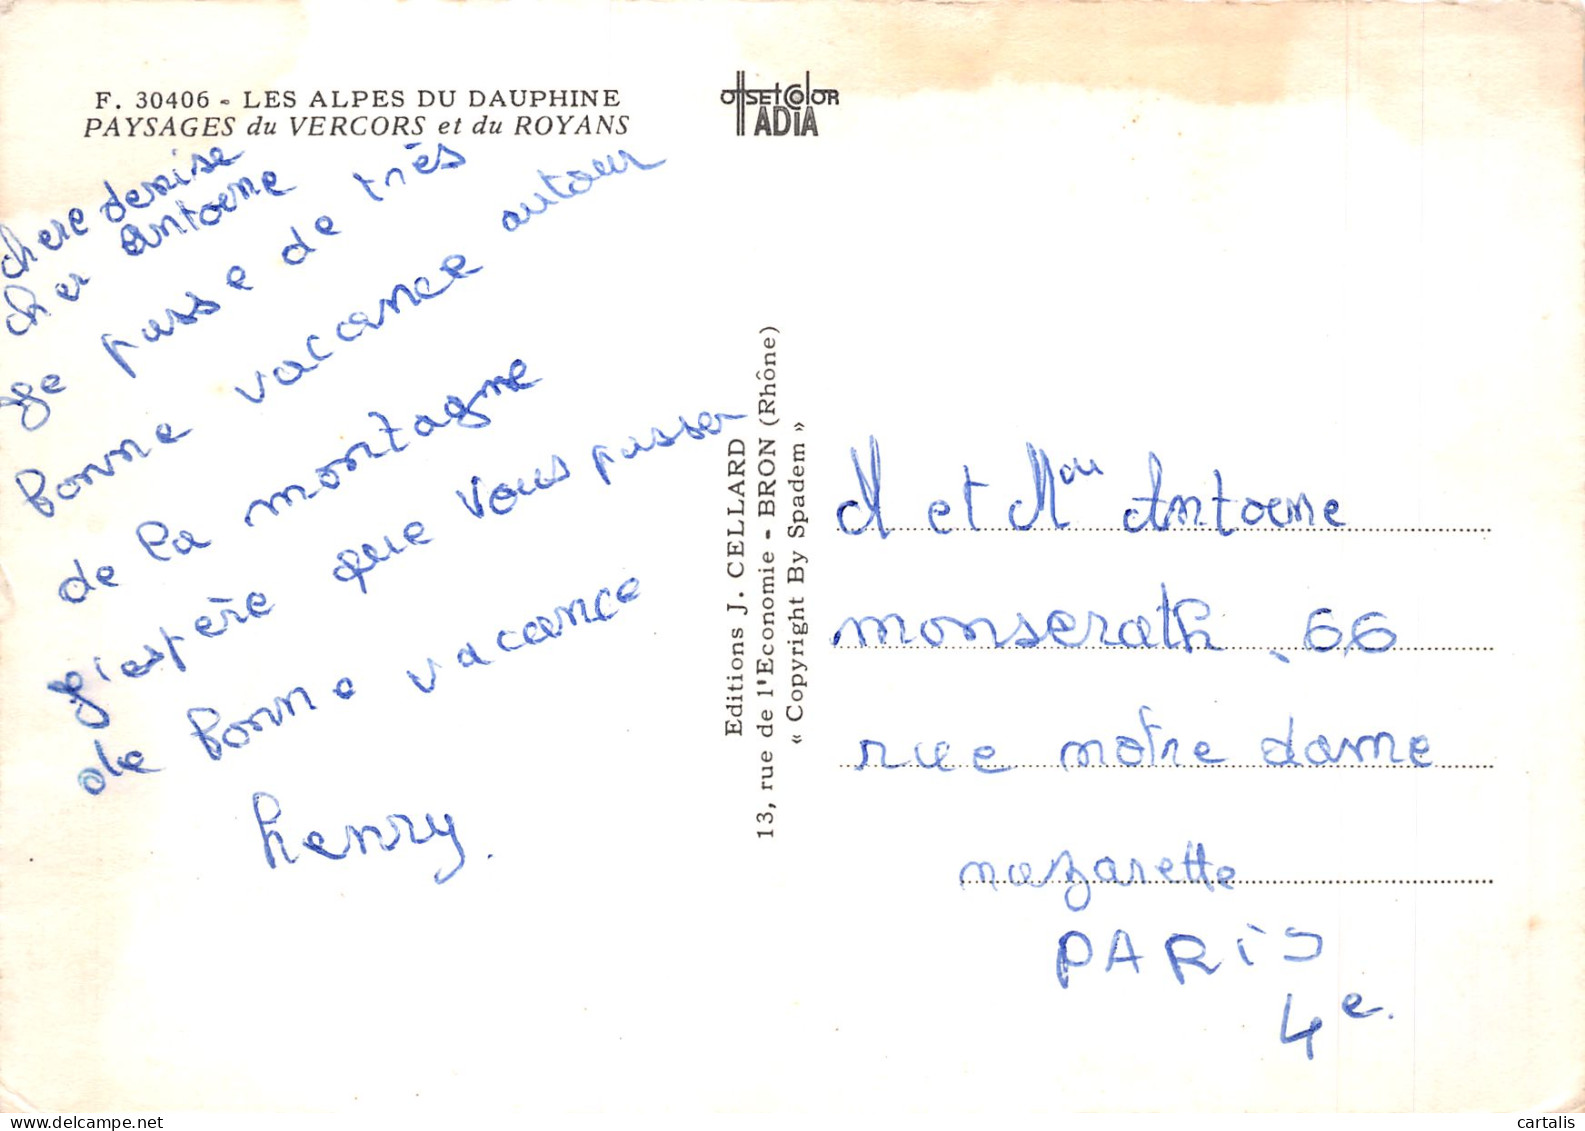 F. 30406 - LES ALPES DU DAUPHINE
PAYSAGES du VERCORS et du ROYANS
OffSEt COlOR
ADIA
chere denise
cher antoine
Je passe de très
bonne vacance autour
de la montagne
j'espère que vous passer
de bonne vacance
henry.
Editions J. CELLARD
13, rue de l'Economie - BRON (Rhône)
« Copyright By Spadem »
M et Mme Antoine
monserath 66
rue notre dame
nazarette
PARIS
4e.
cartalis